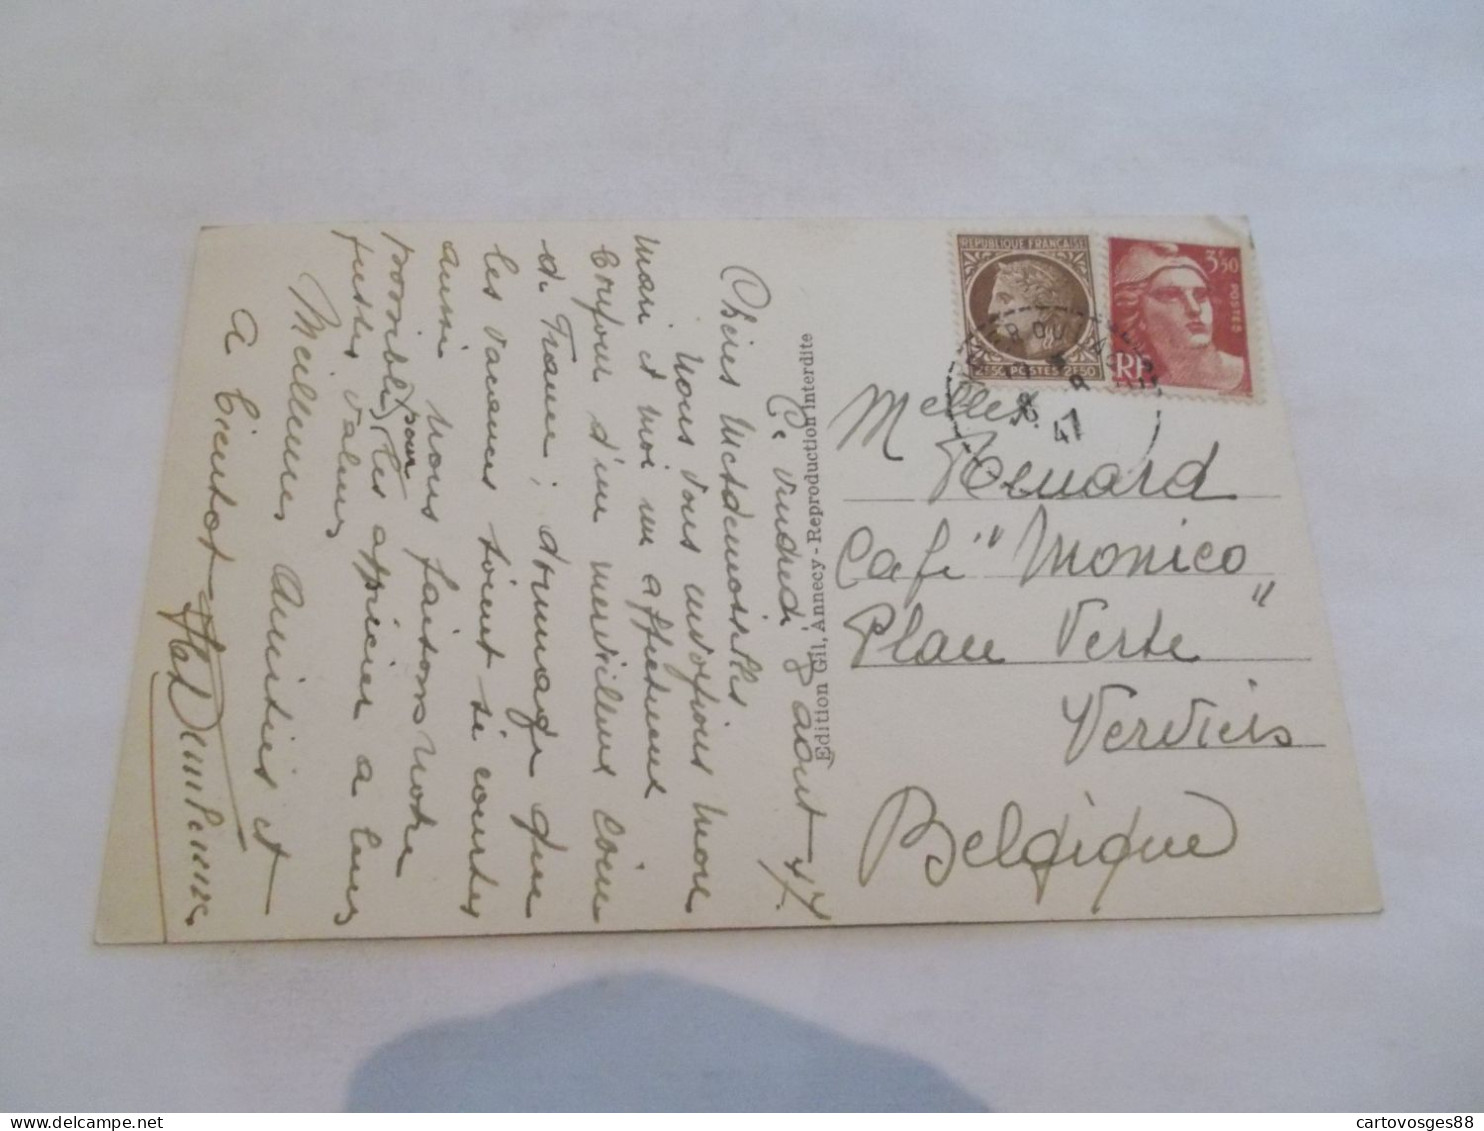 Ce Vendredi 8 août 47.
Chères Mesdemoiselles
Nous vous envoyons mon
mari et moi un affectueux
bonjour d'un merveilleux coin
de France ; dommage que
les vacances soient si courtes
aussi nous faisons notre
possible pour les apprécier à leur
justes valeur
Meilleures Amitiés et
A bientôt
Edition Gil, Annecy - Reproduction interdite
REPUBLIQUE FRANÇAISE
2F50 POSTES 2F50
3F50
POSTES
RF
47
Melles
Renard
Café "Monico"
Place Verte
Verviers
Belgique
cartovosges88